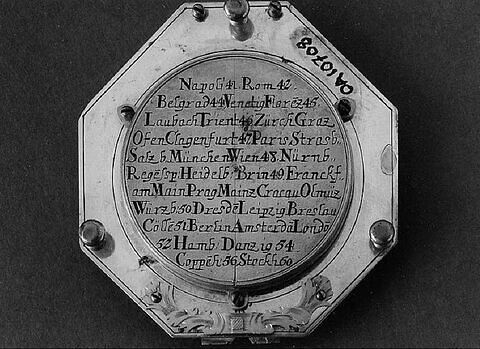 Napoli 41 Rom 42
Belgrad 44 Venetig Florēz 45
Laubach Trient 46 Zürch Graz
Ofen Clagenfurt 47 Paris Strasb.
Salz b. München Wien 48 Nürnb
Regēsp. Heidelb Brin 49 Franckf.
am Main Prag Mainz Cracau Olmüz
Würzb. 50 Dresdē Leipzig Breslau
Cölle 51 Berlin Amsterdā Londō
52 Hamb. Danzig 54
Coppēh 56 Stockh 60
OA10708